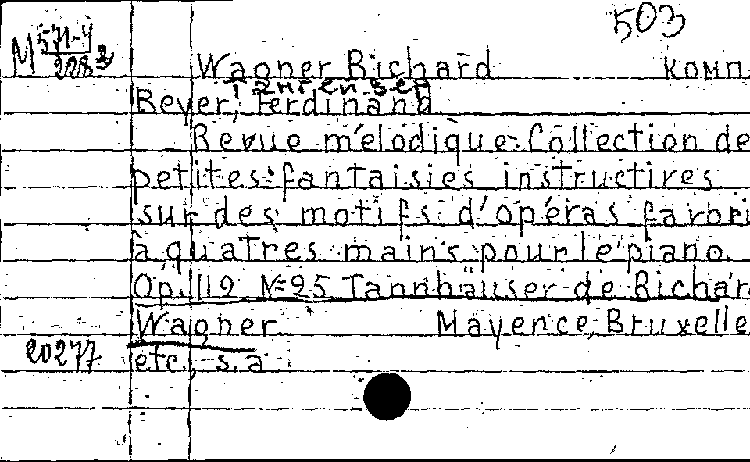 503
M 571-4
2283
Wagner Richard комп.
Beyer, Ferdinand
Revue mélodique. Collection de
petites fantaisies instructives
sur des motifs d'opéras favori
à quatres mains pour le piano.
Op. 112 № 25 Tannhäuser de Richar
Wagner Mayence, Bruxelle
20277 etc., s.a.